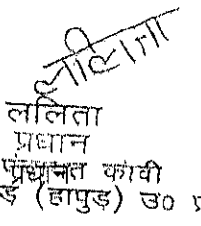 ललिता
ललिता
प्रधान
पंचायत कावी
ड़ (हापुड़) उ०